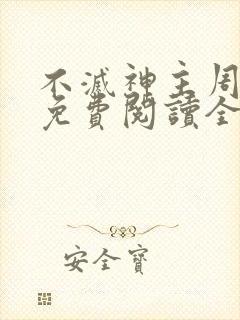 不滅神主周
免費閱讀全
安全寶